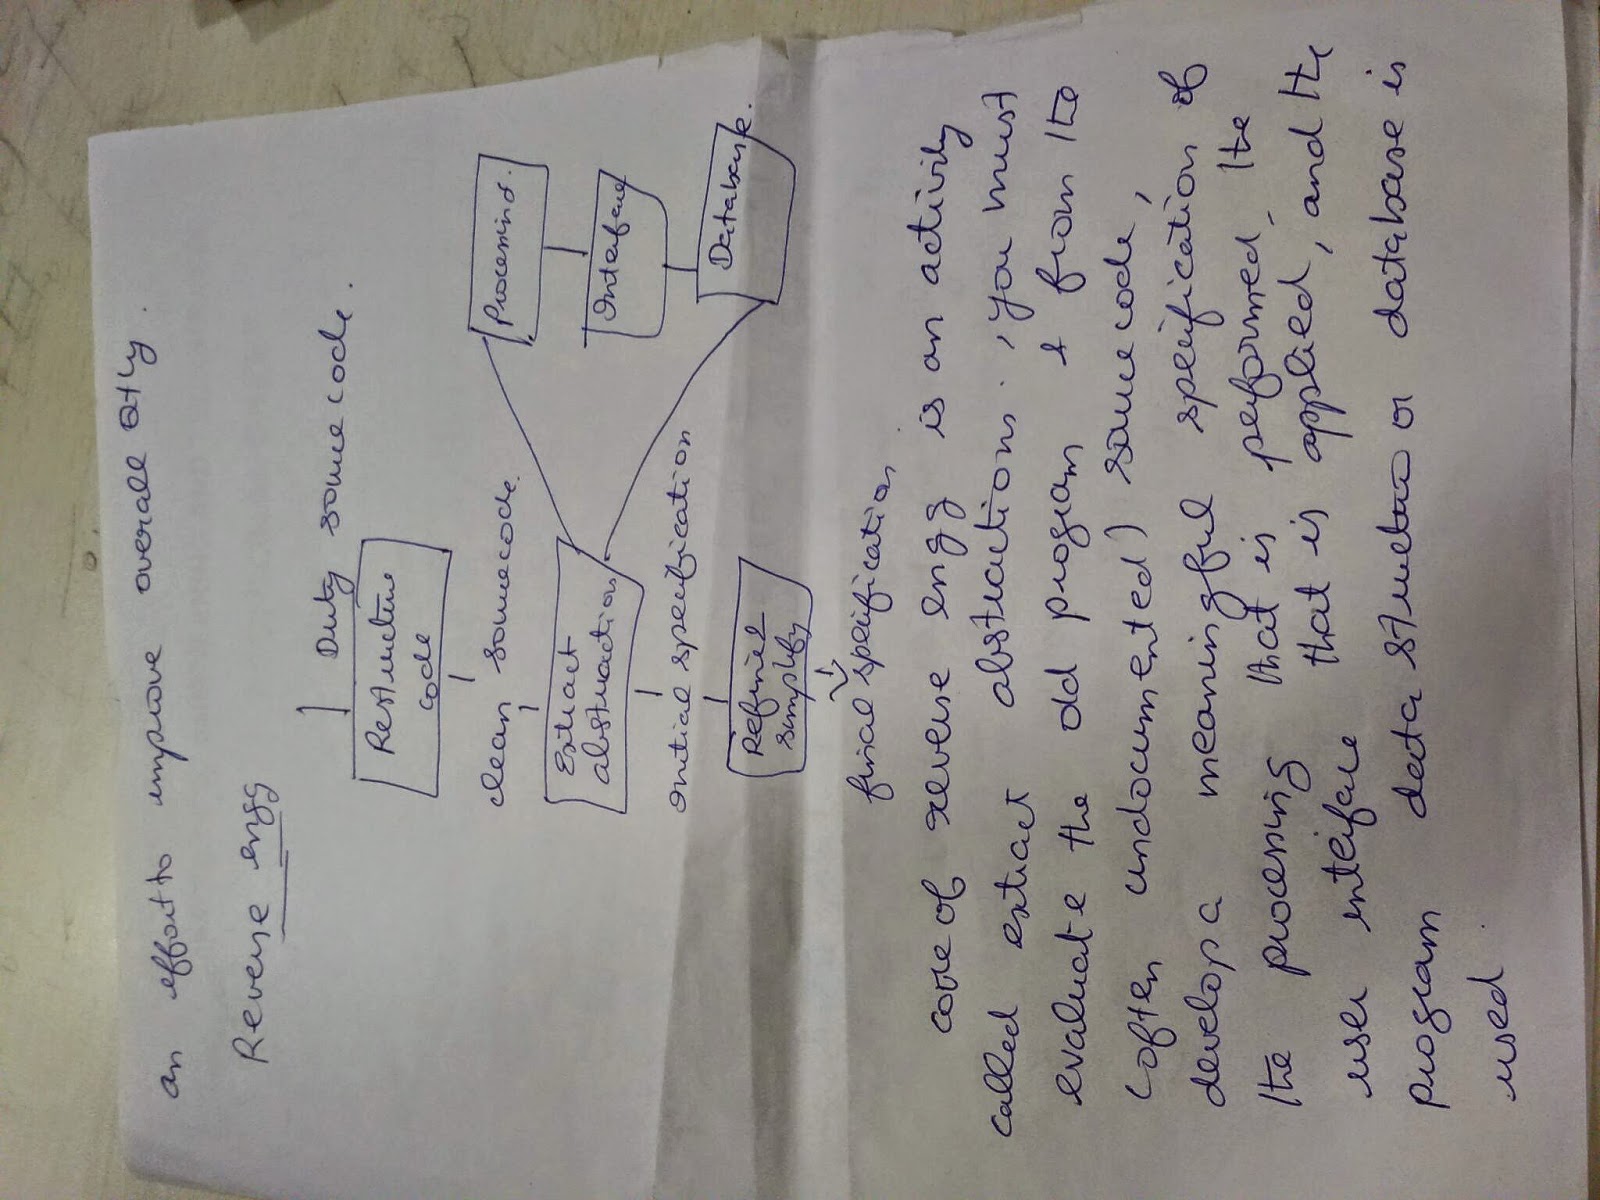 an effort to improve overall Qty.
Reverse engg
Dirty source code.
Restructure
code
clean source code.
Extract
abstractions
Processing.
Interface
Database.
initial specification
Refine &
simplify
final specification
core of reverse engg is an activity
called extract abstractions. , you must
evaluate the old program & from the
(often undocumented) source code,
develop a meaningful specification of
the processing that is performed, the
user interface that is applied, and the
program data structure or database is
used